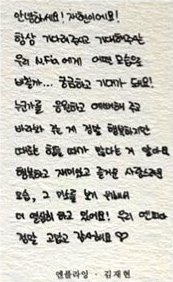 안녕하세요! 재현이에요!
항상 기다려주고 기대해주는
우리 N.Fia 에게 어떤 모습을
비출까... 궁금하고 기대가 돼요!
누군가를 응원하고 예뻐해 주고
바라봐 주는 게 정말 행복하지만
때로는 힘들 때가 많다는 걸 알아요
행복하고 재미있고 즐거운 사람으로
모습, 그 미소를 보기 위해서
더 열심히 하고 있어요! 우리 엔피아
정말 고맙고 감사해요♡
엔플라잉 · 김재현